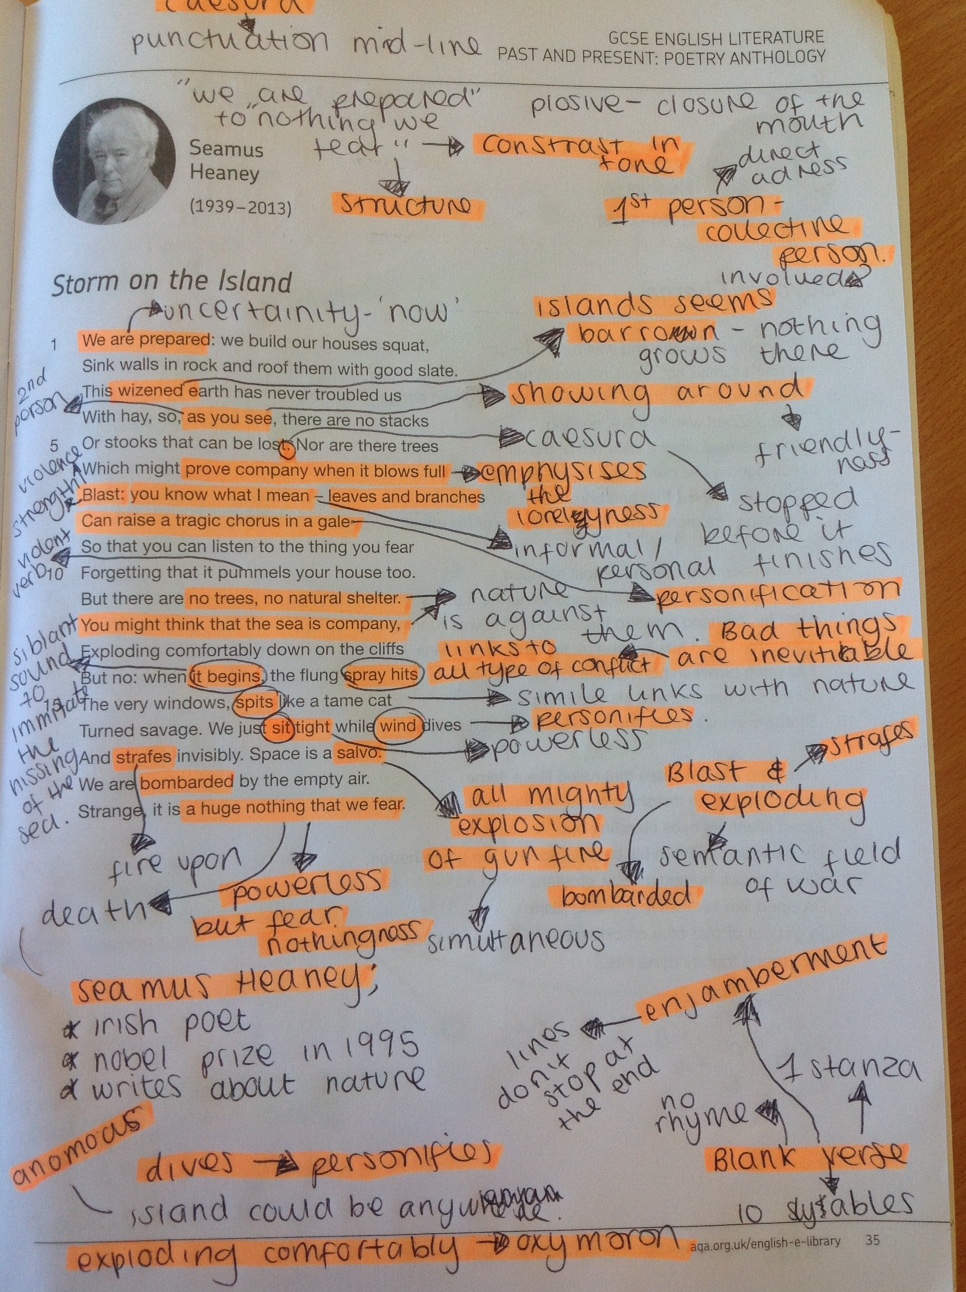 caesura
punctuation mid-line
GCSE ENGLISH LITERATURE
PAST AND PRESENT: POETRY ANTHOLOGY
"we are prepared"
to "nothing we
fear"
Structure
Constrast in
tone
plosive - closure of the
mouth
direct
adress
1st person -
collective
person.
involved?
Seamus
Heaney
(1939–2013)
Storm on the Island
uncertainity - 'now'
1
We are prepared: we build our houses squat,
Sink walls in rock and roof them with good slate.
This wizened earth has never troubled us
With hay, so, as you see, there are no stacks
5
Or stooks that can be lost. Nor are there trees
Which might prove company when it blows full
Blast: you know what I mean – leaves and branches
Can raise a tragic chorus in a gale
So that you can listen to the thing you fear
10
Forgetting that it pummels your house too.
But there are no trees, no natural shelter.
You might think that the sea is company,
Exploding comfortably down on the cliffs
But no: when it begins, the flung spray hits
15
The very windows, spits like a tame cat
Turned savage. We just sit tight while wind dives
And strafes invisibly. Space is a salvo.
We are bombarded by the empty air.
Strange, it is a huge nothing that we fear.
2nd
person
violence
strength
violent
verb
siblant
sound
to
immitate
the
hissing
of the
sea.
islands seems
barrown - nothing
grows there
showing around
friendly-
ness
caesura
stopped
before it
finishes
emphysises
the
lonelyness
informal/
personal
personification
nature
is against
them.
Bad things
are inevitiable
links to
all type of conflict
simile links with nature
personifies.
powerless
all mighty
explosion
of gun fire
simultaneous
Blast &
exploding
strafes
bombarded
semantic field
of war
fire upon
death
powerless
but fear
nothingness
seamus Heaney;
* irish poet
* nobel prize in 1995
* writes about nature
enjamberment
lines
don't
stop at
the end
1 stanza
no
rhyme
Blank verse
10 syllables
anomous
island could be anywhere.
dives → personifies
exploding comfortably → oxymoron
aqa.org.uk/english-e-library
35